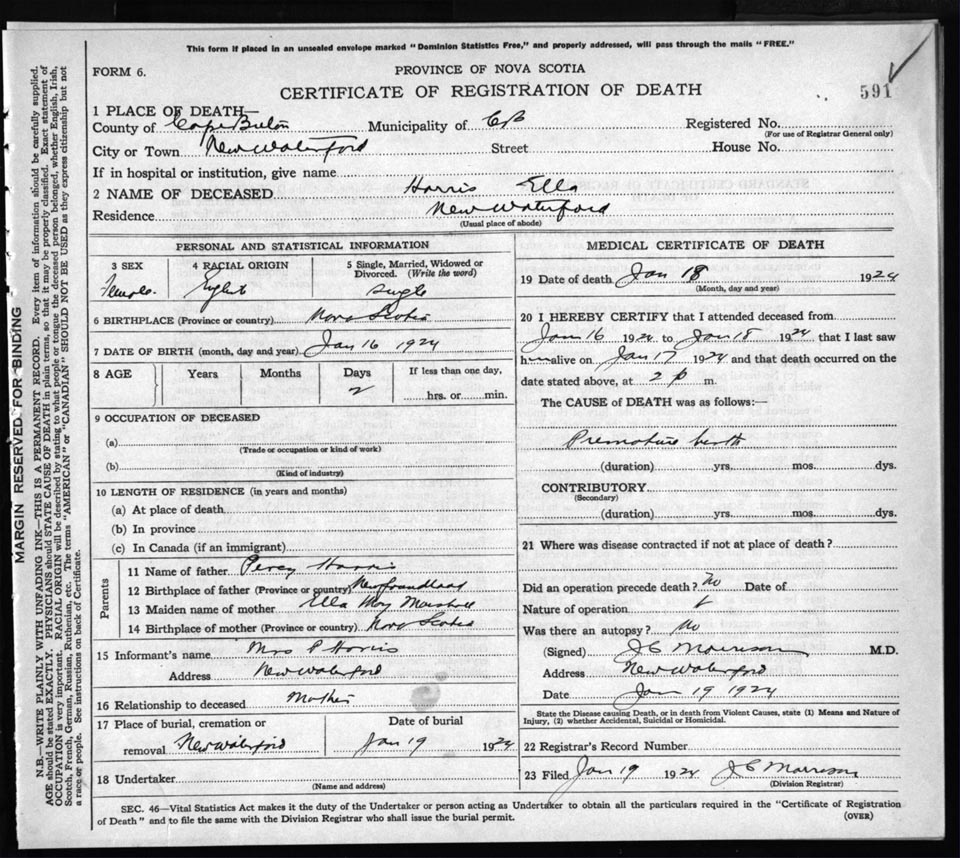 This form if placed in an unsealed envelope marked "Dominion Statistics Free," and properly addressed, will pass through the mails "FREE."
FORM 6.
PROVINCE OF NOVA SCOTIA
CERTIFICATE OF REGISTRATION OF DEATH
591
1 PLACE OF DEATH—
County of Cape Breton Municipality of CB Registered No.
(For use of Registrar General only)
City or Town New Waterford Street House No.
If in hospital or institution, give name
2 NAME OF DECEASED Harris Ella
Residence New Waterford
(Usual place of abode)
PERSONAL AND STATISTICAL INFORMATION
3 SEX 4 RACIAL ORIGIN 5 Single, Married, Widowed or Divorced. (Write the word)
Female English single
6 BIRTHPLACE (Province or country) Nova Scotia
7 DATE OF BIRTH (month, day and year) Jan 16 1924
8 AGE Years Months Days If less than one day,
2 hrs. or min.
9 OCCUPATION OF DECEASED
(a)
(Trade or occupation or kind of work)
(b)
(Kind of industry)
10 LENGTH OF RESIDENCE (in years and months)
(a) At place of death
(b) In province
(c) In Canada (if an immigrant)
Parents
11 Name of father Percy Harris
12 Birthplace of father (Province or country) Newfoundland
13 Maiden name of mother Ella May Marshall
14 Birthplace of mother (Province or country) Nova Scotia
15 Informant's name Mrs P Harris
Address New Waterford
16 Relationship to deceased Mother
17 Place of burial, cremation or removal New Waterford
Date of burial
Jan 19 1924
18 Undertaker
(Name and address)
MEDICAL CERTIFICATE OF DEATH
19 Date of death Jan 18 1924
(Month, day and year)
20 I HEREBY CERTIFY that I attended deceased from
Jan 16 1924 to Jan 18 1924 that I last saw
h alive on Jan 17 1924 and that death occurred on the
date stated above, at 2 p m.
The CAUSE of DEATH was as follows:—
Premature birth
(duration) yrs. mos. dys.
CONTRIBUTORY
(Secondary)
(duration) yrs. mos. dys.
21 Where was disease contracted if not at place of death?
Did an operation precede death? no Date of
Nature of operation
Was there an autopsy? no
(Signed) J C Morrison M.D.
Address New Waterford
Date Jan 19 1924
State the Disease causing Death, or in death from Violent Causes, state (1) Means and Nature of
Injury, (2) whether Accidental, Suicidal or Homicidal.
22 Registrar's Record Number
23 Filed Jan 19 1924 J C Morrison
(Division Registrar)
SEC. 46—Vital Statistics Act makes it the duty of the Undertaker or person acting as Undertaker to obtain all the particulars required in the "Certificate of Registration
of Death" and to file the same with the Division Registrar who shall issue the burial permit.
(OVER)
MARGIN RESERVED FOR BINDING
N.B.—WRITE PLAINLY WITH UNFADING INK—THIS IS A PERMANENT RECORD. Every item of information should be carefully supplied.
AGE should be stated EXACTLY. PHYSICIANS should STATE CAUSE OF DEATH in plain terms, so that it may be properly classified. Exact statement of
OCCUPATION is very important. RACIAL ORIGIN will be described by stating to what people or tongue the deceased person belonged, whether English, Irish,
Scotch, French, German, Russian, Ruthenian, etc. The terms "AMERICAN" or "CANADIAN" SHOULD NOT BE USED as they express citizenship but not
a race or people. See instructions on back of Certificate.